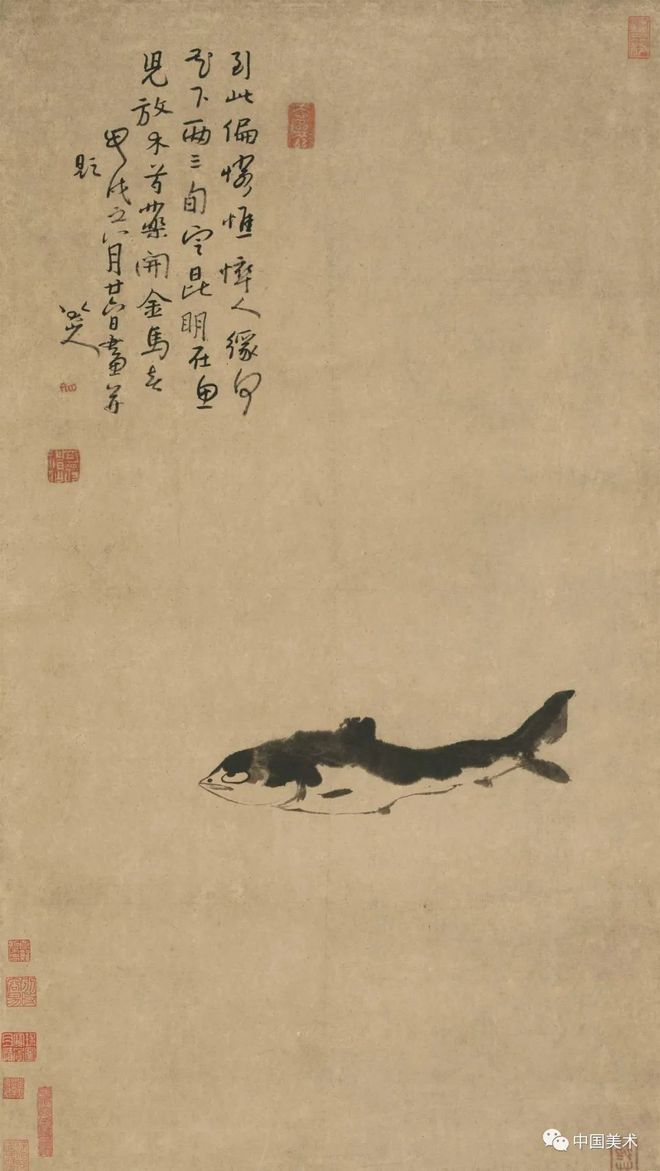 到此偏憐憔悴人緣何
花下兩三旬定昆明在魚
兒放木芍藥開金馬春
甲戌之八月廿六日畫并
題
八大山人
中国美术